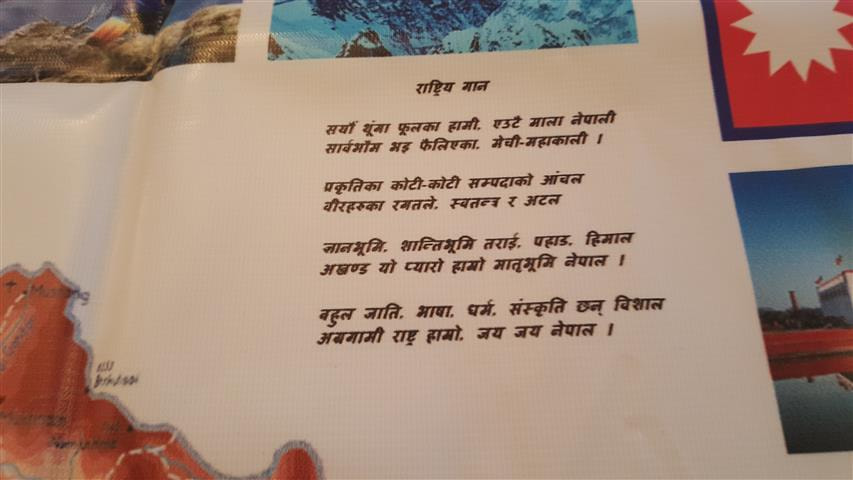 राष्ट्रिय गान
सयौं थूंगा फूलका हामी, एउटै माला नेपाली
सार्वभौम भइ फैलिएका, मेची-महाकाली ।
प्रकृतिका कोटी-कोटी सम्पदाको आंचल
वीरहरुका रगतले, स्वतन्त्र र अटल
ज्ञानभूमि, शान्तिभूमि तराई, पहाड, हिमाल
अखण्ड यो प्यारो हाम्रो मातृभूमि नेपाल ।
बहुल जाति, भाषा, धर्म, संस्कृति छन् विशाल
अग्रगामी राष्ट्र हाम्रो, जय जय नेपाल ।
Mustang